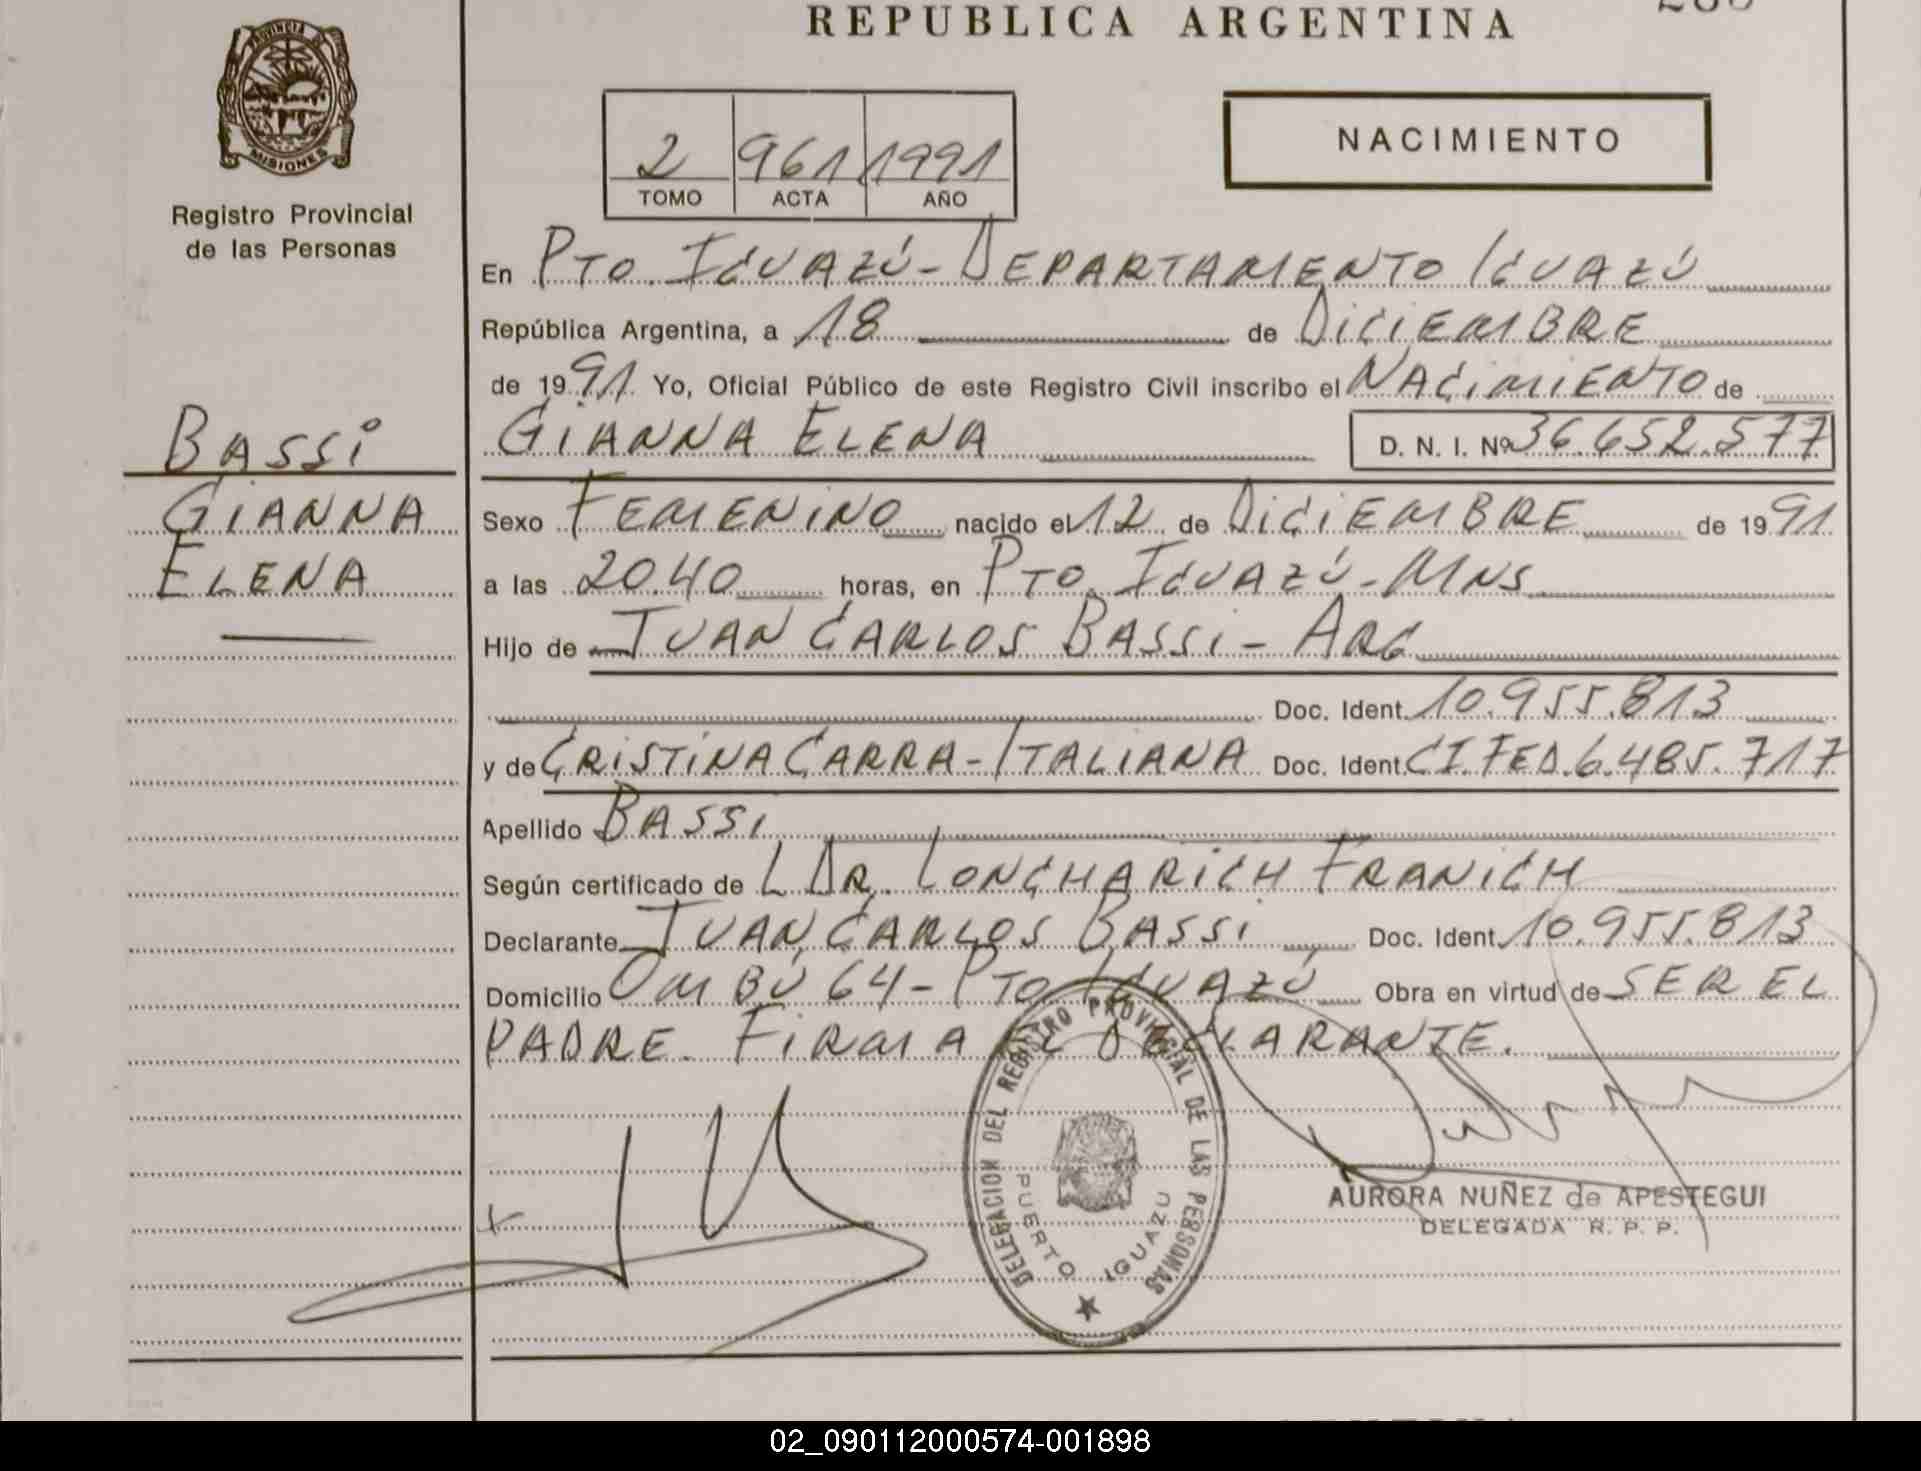 REPUBLICA ARGENTINA
PROVINCIA DE
MISIONES
Registro Provincial
de las Personas
2 961 1991
TOMO ACTA AÑO
NACIMIENTO
En PTO. IGUAZÚ - DEPARTAMENTO IGUAZÚ
República Argentina, a 18 de DICIEMBRE
de 1991 Yo, Oficial Público de este Registro Civil inscribo el NACIMIENTO de
GIANNA ELENA D. N. I. Nº 36.652.577
BASSI
GIANNA
ELENA
Sexo FEMENINO nacido el 12 de DICIEMBRE de 1991
a las 20.40 horas, en PTO. IGUAZÚ - MNS
Hijo de JUAN CARLOS BASSI - ARG
Doc. Ident. 10.955.813
y de CRISTINA CARRA - ITALIANA Doc. Ident. CI.FED.6.485.717
Apellido BASSI
Según certificado de L DR. LONCHARICH FRANICH
Declarante JUAN CARLOS BASSI Doc. Ident. 10.955.813
Domicilio OMBÚ 64 - PTO IGUAZÚ Obra en virtud de SER EL
PADRE. FIRMA EL DECLARANTE.
DELEGACION DEL REGISTRO PROVINCIAL DE LAS PERSONAS
PUERTO IGUAZU
AURORA NUÑEZ de APESTEGUI
DELEGADA R. P. P.
02_090112000574-001898